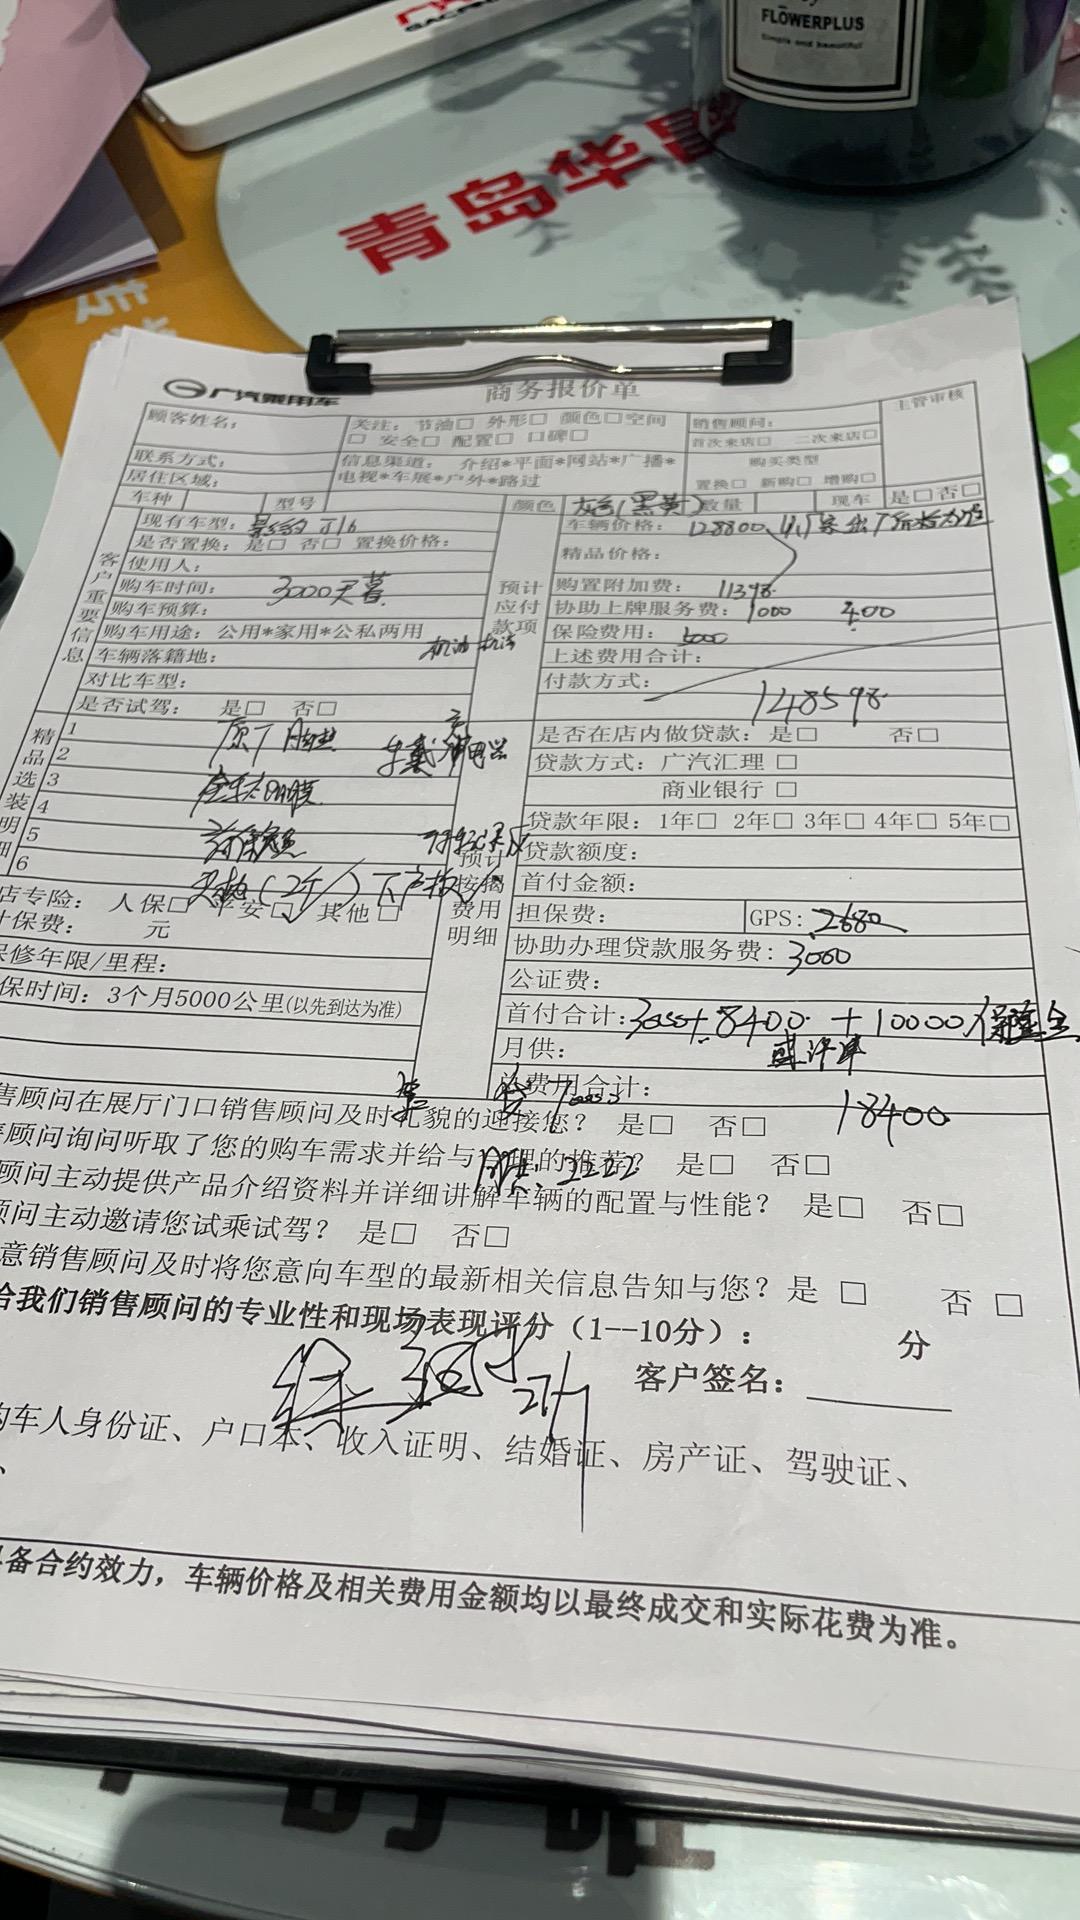 FLOWERPLUS
Simple and beautiful
青岛华
广汽乘用车
商务报价单
顾客姓名：
关注： 节油□ 外形□ 颜色□空间
□ 安全□ 配置□ 口碑□
销售顾问：
首次来店□ 二次来店□
主管审核
联系方式：
信息渠道： 介绍*平面*网站*广播*
电视*车展*户外*路过
购买类型
置换□ 新购□ 增购□
居住区域：
车种
型号
颜色
灰色(黑黄)
数量
现车
是□否□
客户重要信息
现有车型：
是否置换：是□ 否□ 置换价格：
使用人：
购车时间：
3000天幕
购车预算：
购车用途： 公用*家用*公私两用
车辆落籍地：
机油 机滤
对比车型：
是否试驾： 是□ 否□
预计应付款项
车辆价格： 128800
精品价格：
购置附加费： 11398
协助上牌服务费： 1000 400
保险费用： 5000
上述费用合计：
付款方式：
148598
精品选装明细
1
原厂脚垫
2
3
全车太阳膜
4
5
6
天幕(2年)
预计按揭费用明细
是否在店内做贷款：是□ 否□
贷款方式：广汽汇理 □
商业银行 □
贷款年限： 1年□ 2年□ 3年□ 4年□ 5年□
贷款额度：
首付金额：
担保费：
GPS: 2680
协助办理贷款服务费： 3000
公证费：
首付合计： +8400 +10000保证金
月供：
总费用合计：
18400
店专险： 人保□ 平安□ 其他□
计保费： 元
保修年限/里程：
保时间：3个月5000公里(以先到达为准)
售顾问在展厅门口销售顾问及时礼貌的迎接您？ 是□ 否□
售顾问询问听取了您的购车需求并给与合理的推荐？ 是□ 否□
月供：2222
顾问主动提供产品介绍资料并详细讲解车辆的配置与性能？ 是□ 否□
顾问主动邀请您试乘试驾？ 是□ 否□
意销售顾问及时将您意向车型的最新相关信息告知与您？是 □ 否 □
给我们销售顾问的专业性和现场表现评分（1--10分）： 分
客户签名：
购车人身份证、户口本、收入证明、结婚证、房产证、驾驶证、
具备合约效力，车辆价格及相关费用金额均以最终成交和实际花费为准。